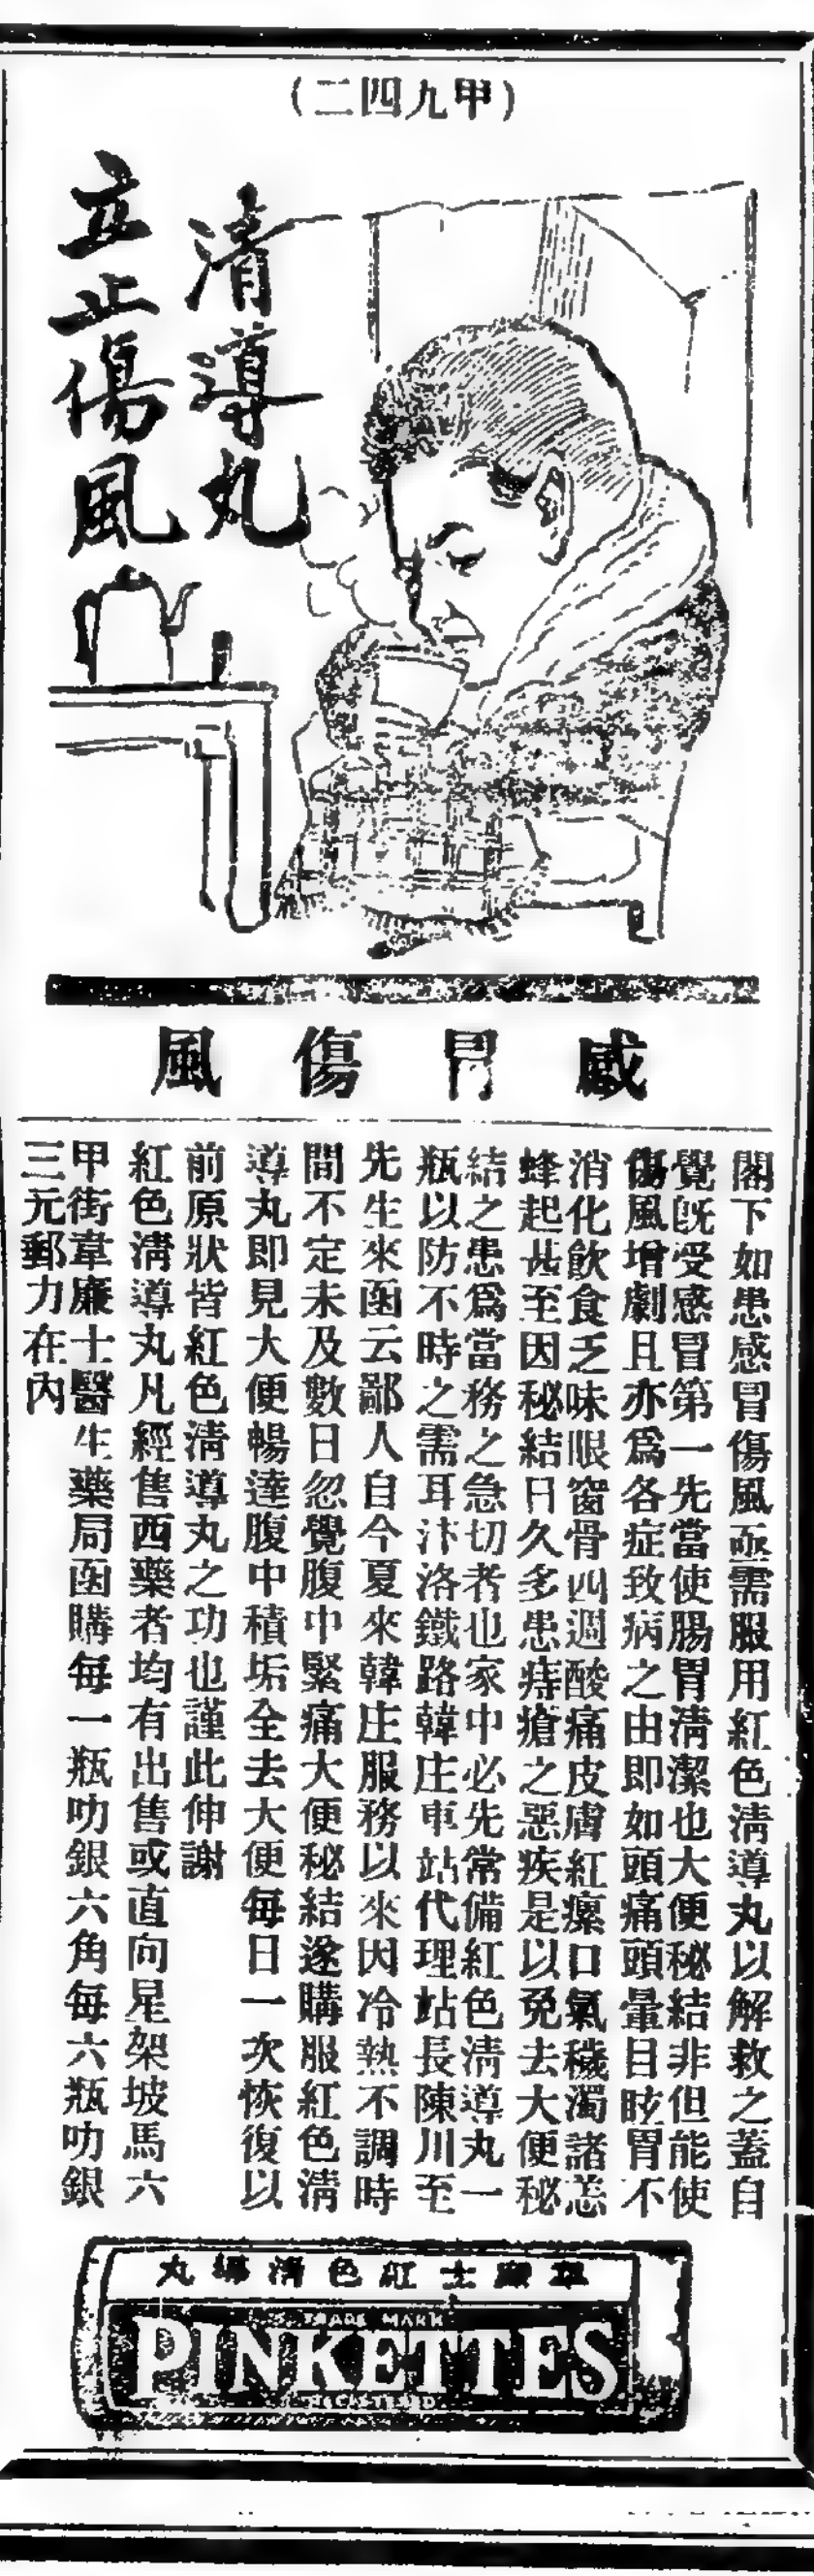 (二四九甲)
清導丸
立止傷風
感冒傷風
閣下如患感冒傷風亟需服用紅色清導丸以解救之蓋自
覺旣受感冒第一先當使腸胃清潔也大便秘結非但能使
傷風增劇且亦爲各症致病之由卽如頭痛頭暈目眩胃不
消化飲食乏味眼窗骨四週酸痛皮膚紅瘰口氣穢濁諸恙
蜂起甚至因秘結日久多患痔瘡之惡疾是以免去大便秘
結之患爲當務之急切者也家中必先常備紅色清導丸一
瓶以防不時之需耳汴洛鐵路韓庄車站代理站長陳川至
先生來函云鄙人自今夏來韓庄服務以來因冷熱不調時
間不定未及數日忽覺腹中緊痛大便秘結遂購服紅色清
導丸卽見大便暢達腹中積垢全去大便每日一次恢復以
前原狀皆紅色清導丸之功也謹此伸謝
紅色清導丸凡經售西藥者均有出售或直向星架坡馬六
甲街韋廉士醫生藥局函購每一瓶叻銀六角每六瓶叻銀
三元郵力在內
韋廉士紅色清導丸
TRADE MARK
PINKETTES
REGISTERED